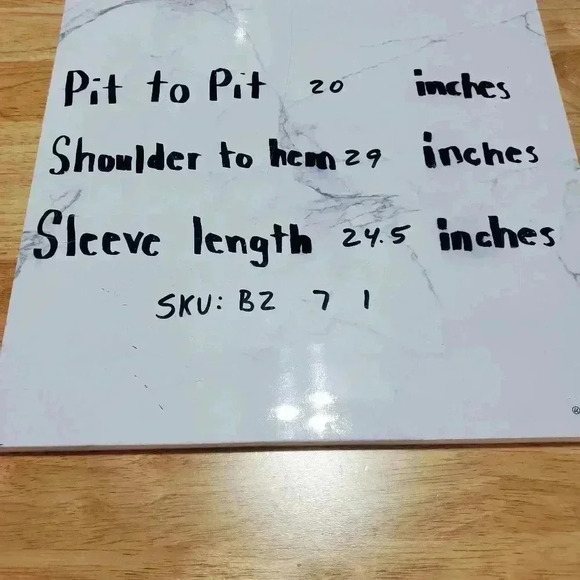 Pit to Pit 20 inches
Shoulder to hem 29 inches
Sleeve length 24.5 inches
SKU: B2 7 1
®